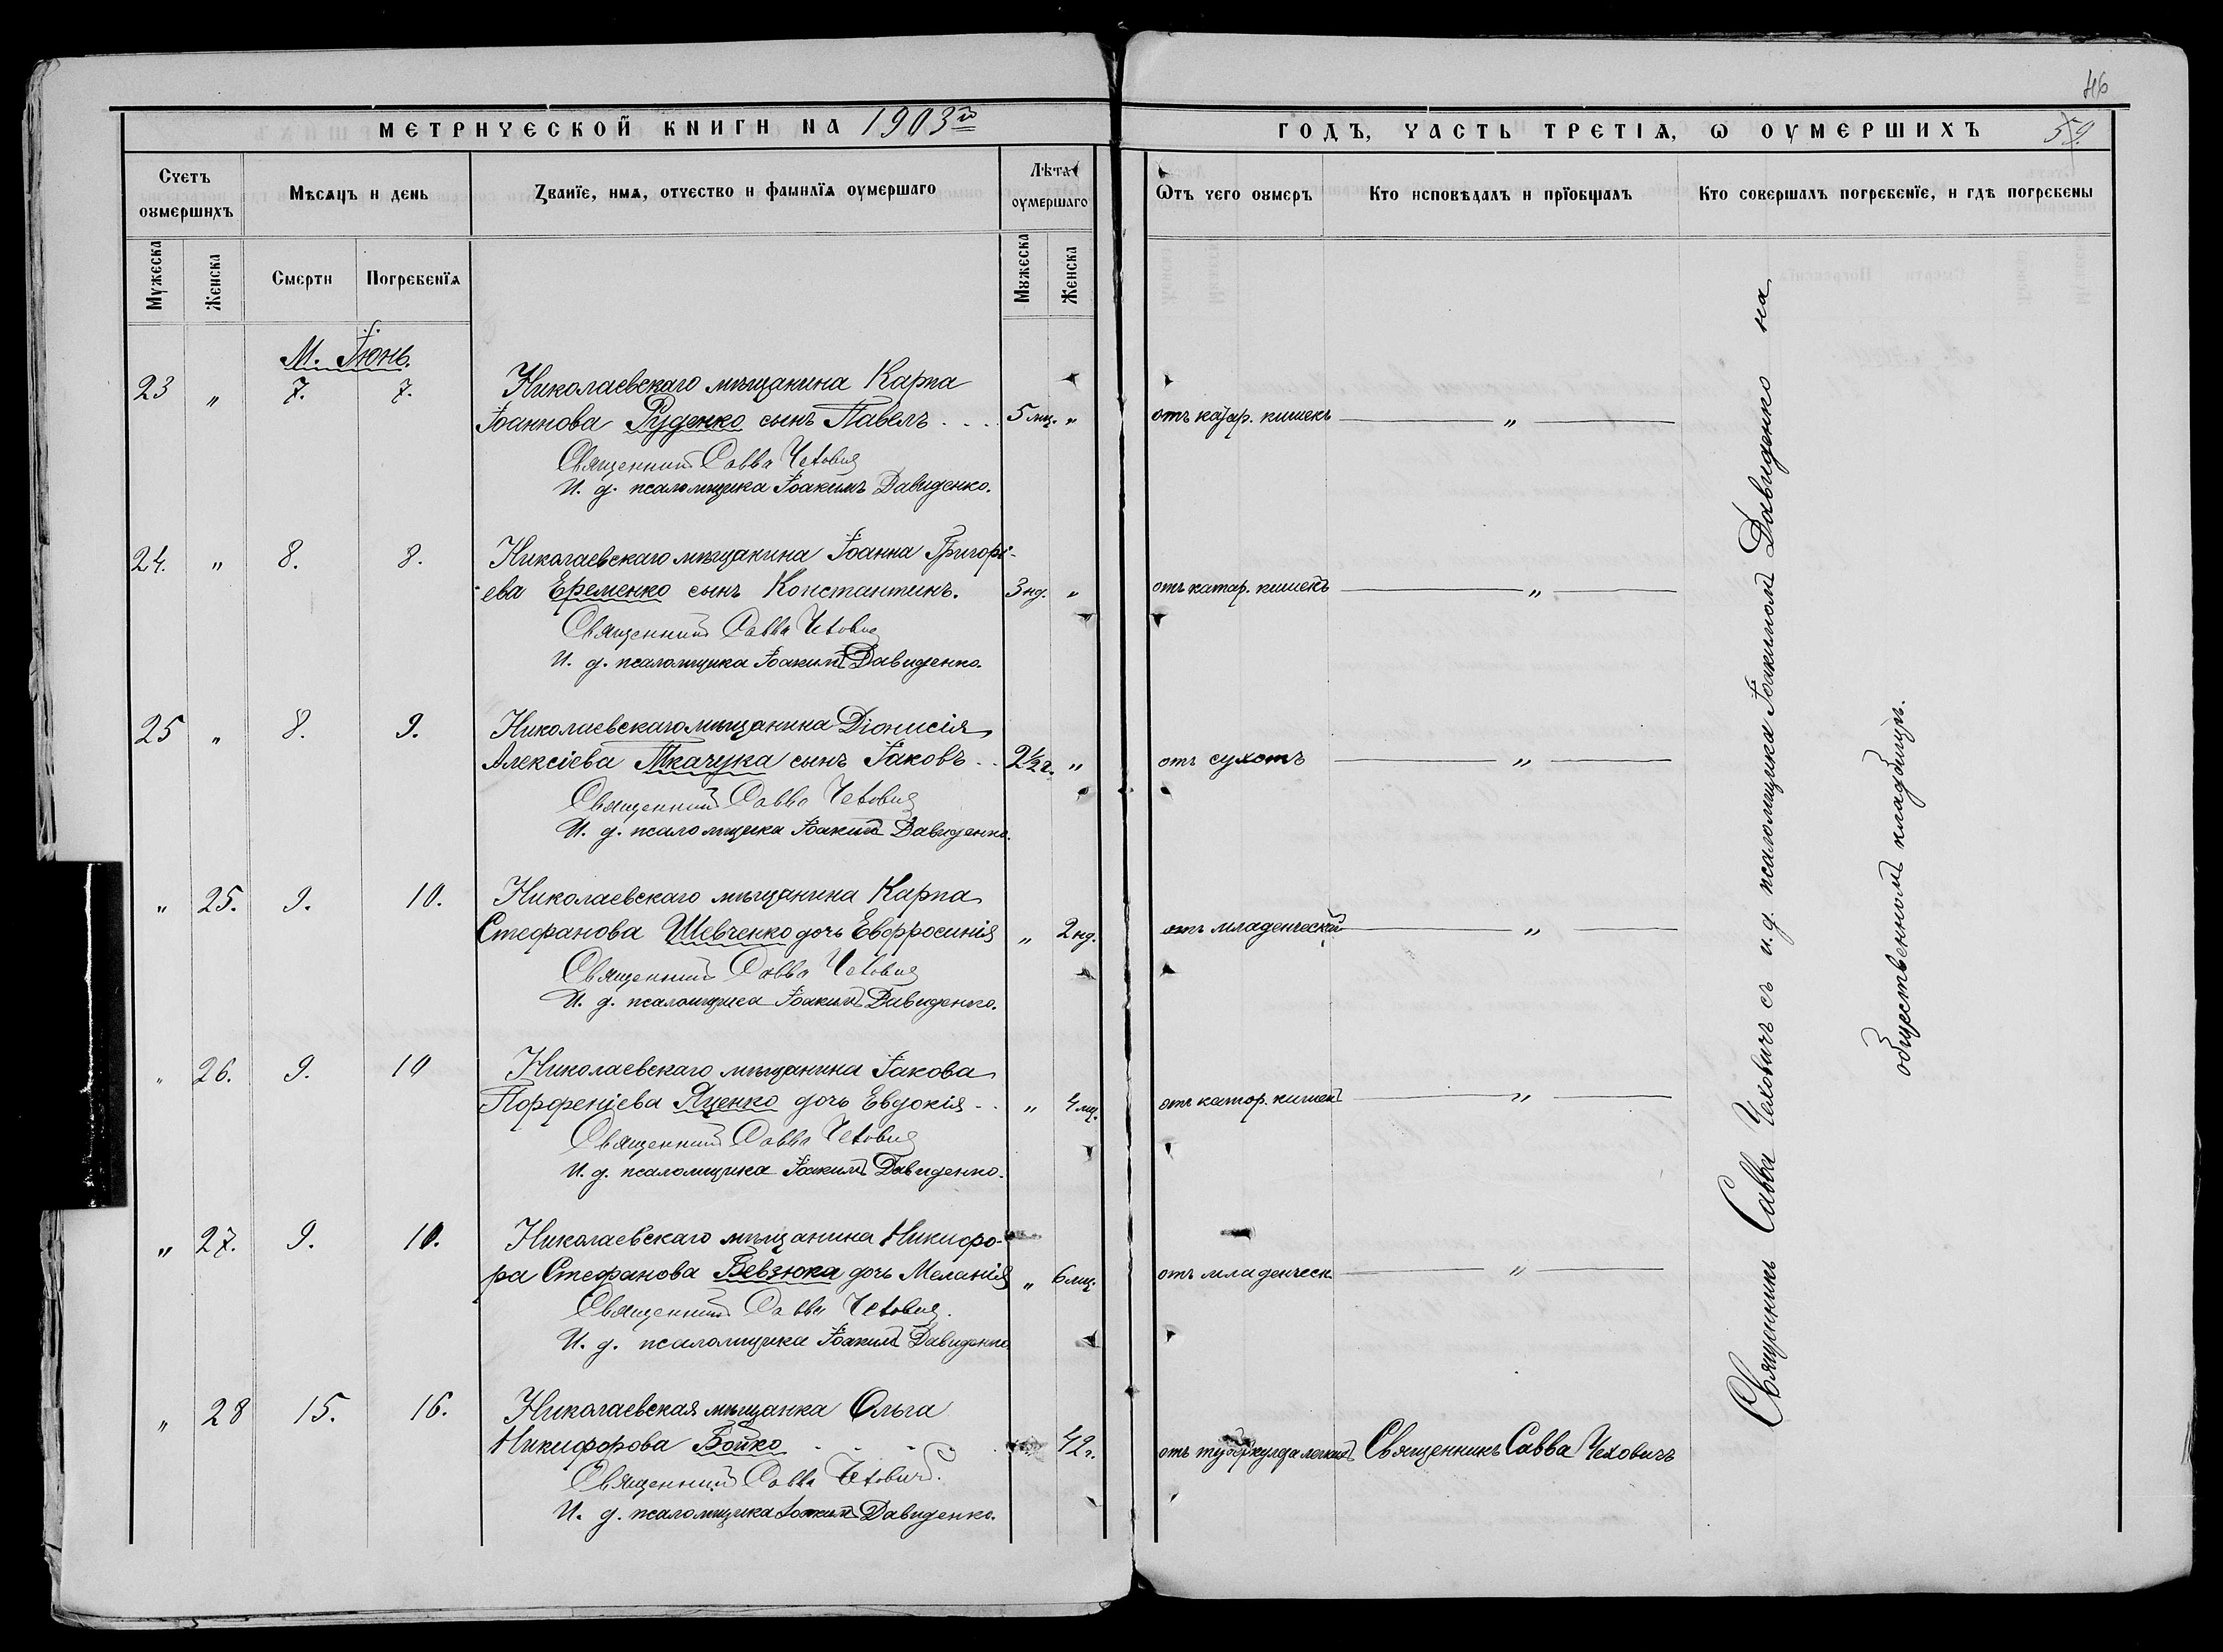 46
МЕТРИЧЕСКОЙ КНИГИ НА 1903го ГОДЪ, ЧАСТЬ ТРЕТІѦ, Ѡ ОУМЕРШИХЪ 59.
Счетъ оумершихъ
Мѣсѧцъ и день
Званїе, имѧ, отчество и фамилїѧ оумершаго
Лѣта оумершаго
Ѿтъ чего оумеръ
Кто исповѣдалъ и прїобщалъ
Кто совершалъ погребенїе, и гдѣ погребены
Мужеска
Женска
Смерти
Погребенїѧ
Мужеска
Женска
М. Іюнь.
23 " 7. 7. Николаевскаго мѣщанина Карпа
Іоаннова Руденко сынъ Павелъ . . . . 5 мц. " отъ катар. кишекъ — " —
Священникъ Савва Чеховичъ
И. д. псаломщика Іоакимъ Давиденко.
24. " 8. 8. Николаевскаго мѣщанина Іоанна Григорі-
ева Еременко сынъ Константинъ. 3 нд. " отъ катар. кишекъ — " —
Священникъ Савва Чеховичъ
И. д. псаломщика Іоакимъ Давиденко.
25 " 8. 9. Николаевскаго мѣщанина Діонисія
Алексіева Ткачука сынъ Іаковъ . . 2½ г. " отъ сухотъ — " —
Священникъ Савва Чеховичъ
И. д. псаломщика Іоакимъ Давиденко.
" 25. 9. 10. Николаевскаго мѣщанина Карпа
Стефанова Шевченко дочь Евфросинія " 2 нд. отъ младенческой — " —
Священникъ Савва Чеховичъ
И. д. псаломщика Іоакимъ Давиденко.
" 26. 9. 10 Николаевскаго мѣщанина Іакова
Порфеніева Яценко дочь Евдокія . . " 4 мц. отъ катар. кишекъ — " —
Священникъ Савва Чеховичъ
И. д. псаломщика Іоакимъ Давиденко.
" 27. 9. 10. Николаевскаго мѣщанина Никифо-
ра Стефанова Бевзюка дочь Меланія " 6 мц. отъ младенческ. — " —
Священникъ Савва Чеховичъ.
И. д. псаломщика Іоакимъ Давиденко
" 28 15. 16. Николаевская мѣщанка Ольга
Никифорова Бойко . . . . 42 г. отъ туберкулеза легкихъ Священникъ Савва Чеховичъ
Священникъ Савва Чеховичъ.
И. д. псаломщика Іоакимъ Давиденко.
Священникъ Савва Чеховичъ съ и. д. псаломщика Іоакимомъ Давиденко на
общественномъ кладбищѣ.